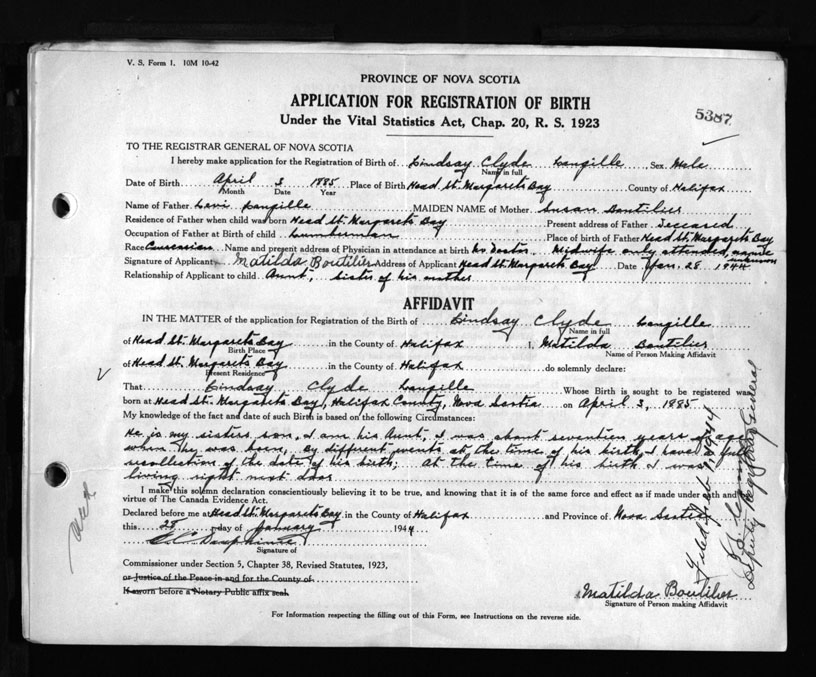 V. S. Form 1. 10M 10-42
PROVINCE OF NOVA SCOTIA
APPLICATION FOR REGISTRATION OF BIRTH
5387
Under the Vital Statistics Act, Chap. 20, R. S. 1923
TO THE REGISTRAR GENERAL OF NOVA SCOTIA
I hereby make application for the Registration of Birth of Lindsay Clyde Langille, Sex Male
Name in full
Date of Birth April 3 1885 Place of Birth Head St. Margarets Bay County of Halifax
Month Date Year
Name of Father Levi Langille MAIDEN NAME of Mother Susan Boutilier
Residence of Father when child was born Head St. Margarets Bay Present address of Father Deceased
Occupation of Father at Birth of child Lumberman Place of birth of Father Head St. Margarets Bay
Race Caucasian Name and present address of Physician in attendance at birth No Doctor, Midwife only attended, name unknown
Signature of Applicant Matilda Boutilier Address of Applicant Head St. Margarets Bay Date Jan. 28 1944
Relationship of Applicant to child Aunt, sister of his mother
AFFIDAVIT
IN THE MATTER of the application for Registration of the Birth of Lindsay Clyde Langille
Name in full
of Head St. Margarets Bay in the County of Halifax I, Matilda Boutilier
Birth Place Name of Person Making Affidavit
of Head St. Margarets Bay in the County of Halifax do solemnly declare:
Present Residence
That Lindsay Clyde Langille Whose Birth is sought to be registered was
born at Head St. Margarets Bay, Halifax County, Nova Scotia on April 3, 1885
My knowledge of the fact and date of such Birth is based on the following Circumstances:
He is my sisters son, I am his Aunt, I was about seventeen years of age
when he was born, By different events at the time of his birth, I have a full
recollection of the date of his birth; At the time of his birth I was
living right next door
I make this solemn declaration conscientiously believing it to be true, and knowing that it is of the same force and effect as if made under oath and
virtue of The Canada Evidence Act.
Declared before me at Head St. Margarets Bay in the County of Halifax and Province of Nova Scotia
this 28 day of January 1944
Signature of
Commissioner under Section 5, Chapter 38, Revised Statutes, 1923,
or Justice of the Peace in and for the County of
If sworn before a Notary Public affix seal.
Matilda Boutilier
Signature of Person making Affidavit
For Information respecting the filling out of this Form, see Instructions on the reverse side.
Filed Feb 1944
Deputy Registrar General